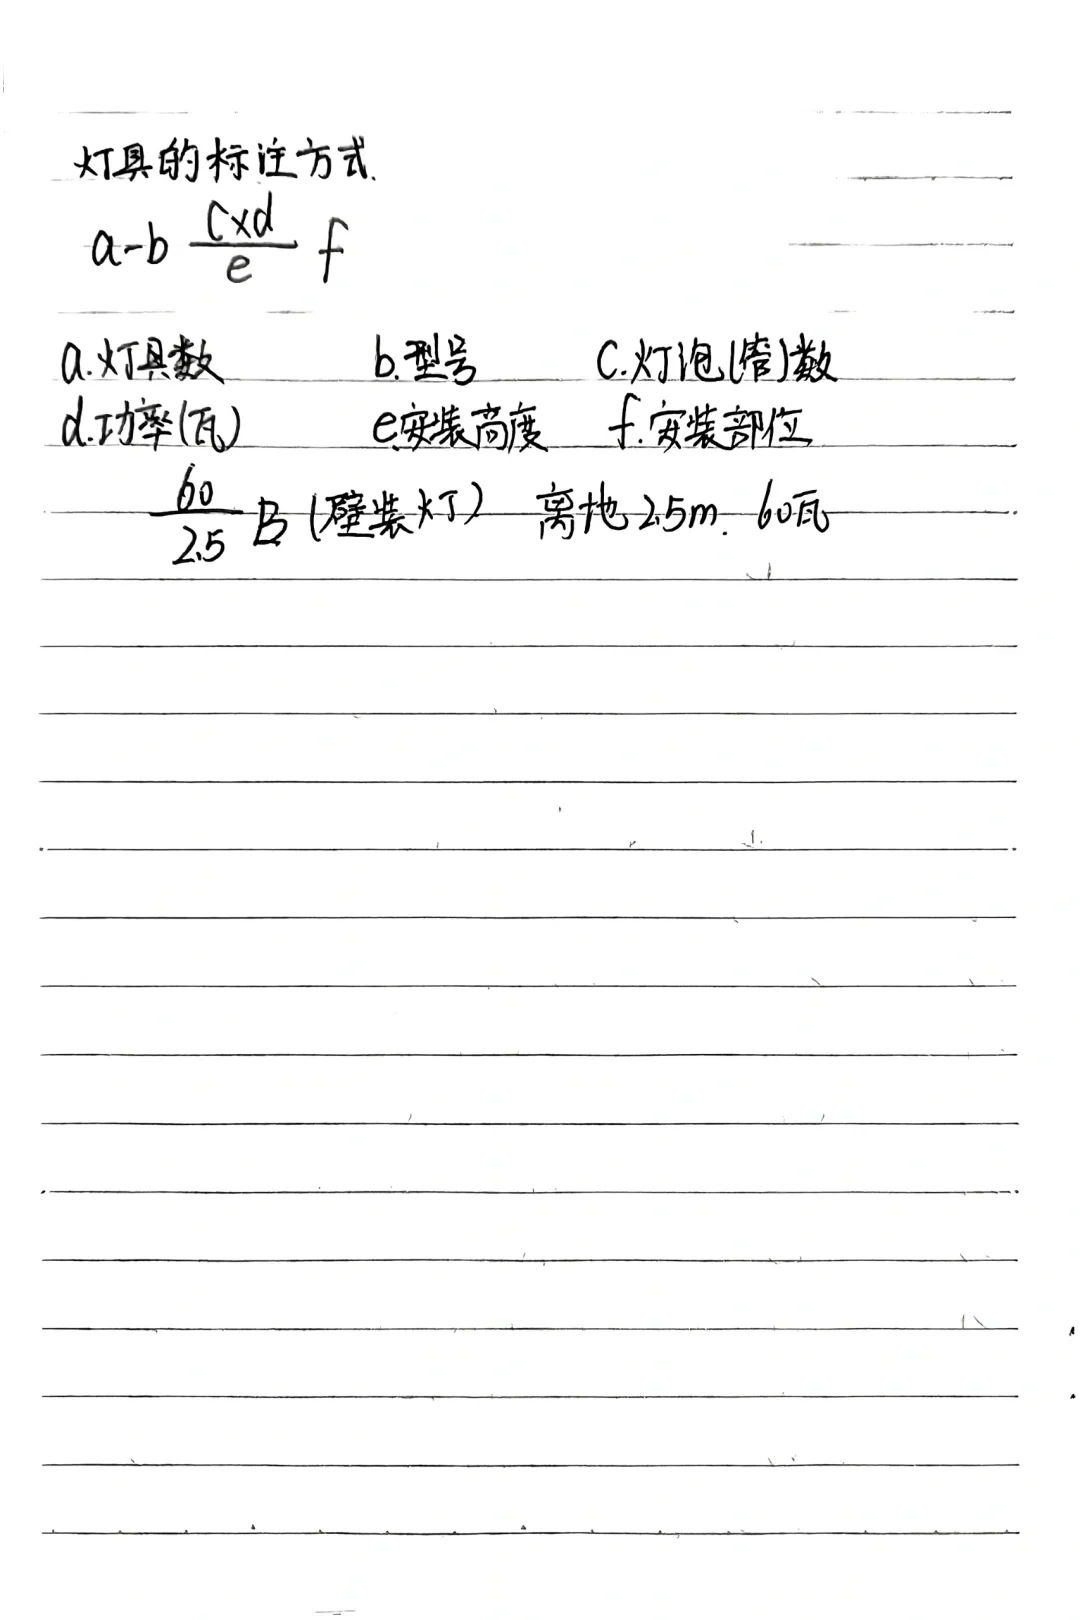 灯具的标注方式.
a-b \frac{c×d}{e} f
a.灯具数 b.型号 C.灯泡(管)数
d.功率(瓦) e.安装高度 f.安装部位
\frac{60}{2.5} B (壁装灯) 离地2.5m. 60瓦